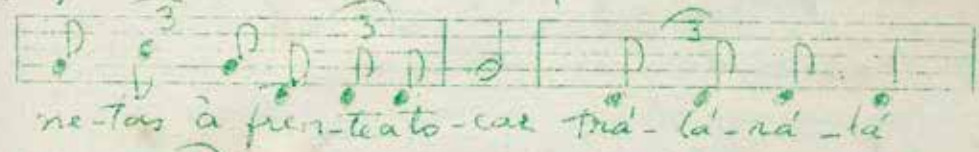 3 3 3
ne-tas à fren-teato-car trá-lá-rá-lá